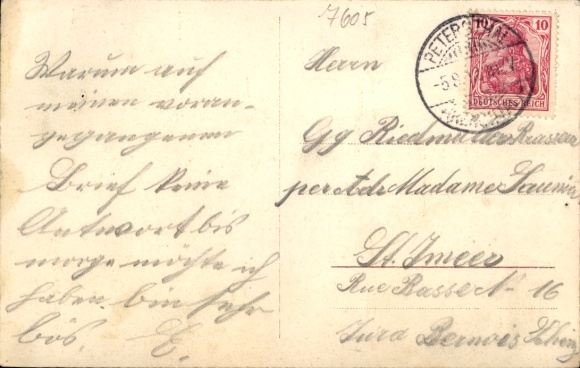 7605
Warum auf
meinen voran-
gegangenen
Brief keine
Antwort bis
morge möchte ich
haben. bin sehr
bös. E.
Herrn
Gg Riedmüller
per Adr Madame
St. Imier
Rue Basse No 16
Jura Bernois
PETERSTHAL
10
DEUTSCHES REICH